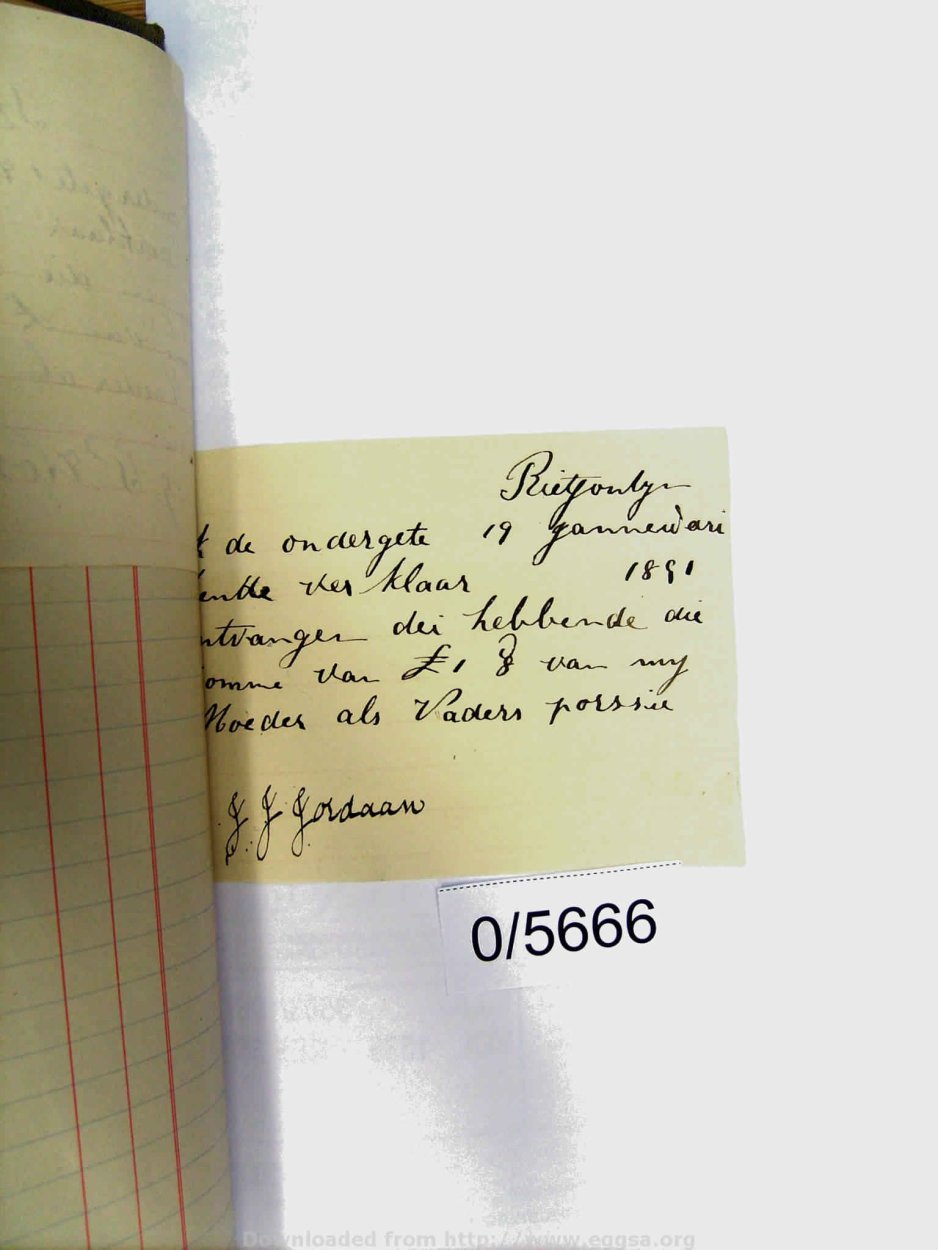 Rietfontyn
de ondergete 19 Jannewari
ver klaar 1891
ntvangen dei hebbende die
omme van £1 van my
Moeder als Vaders porssie
J J Jordaan
0/5666
Downloaded from http://www.eggsa.org